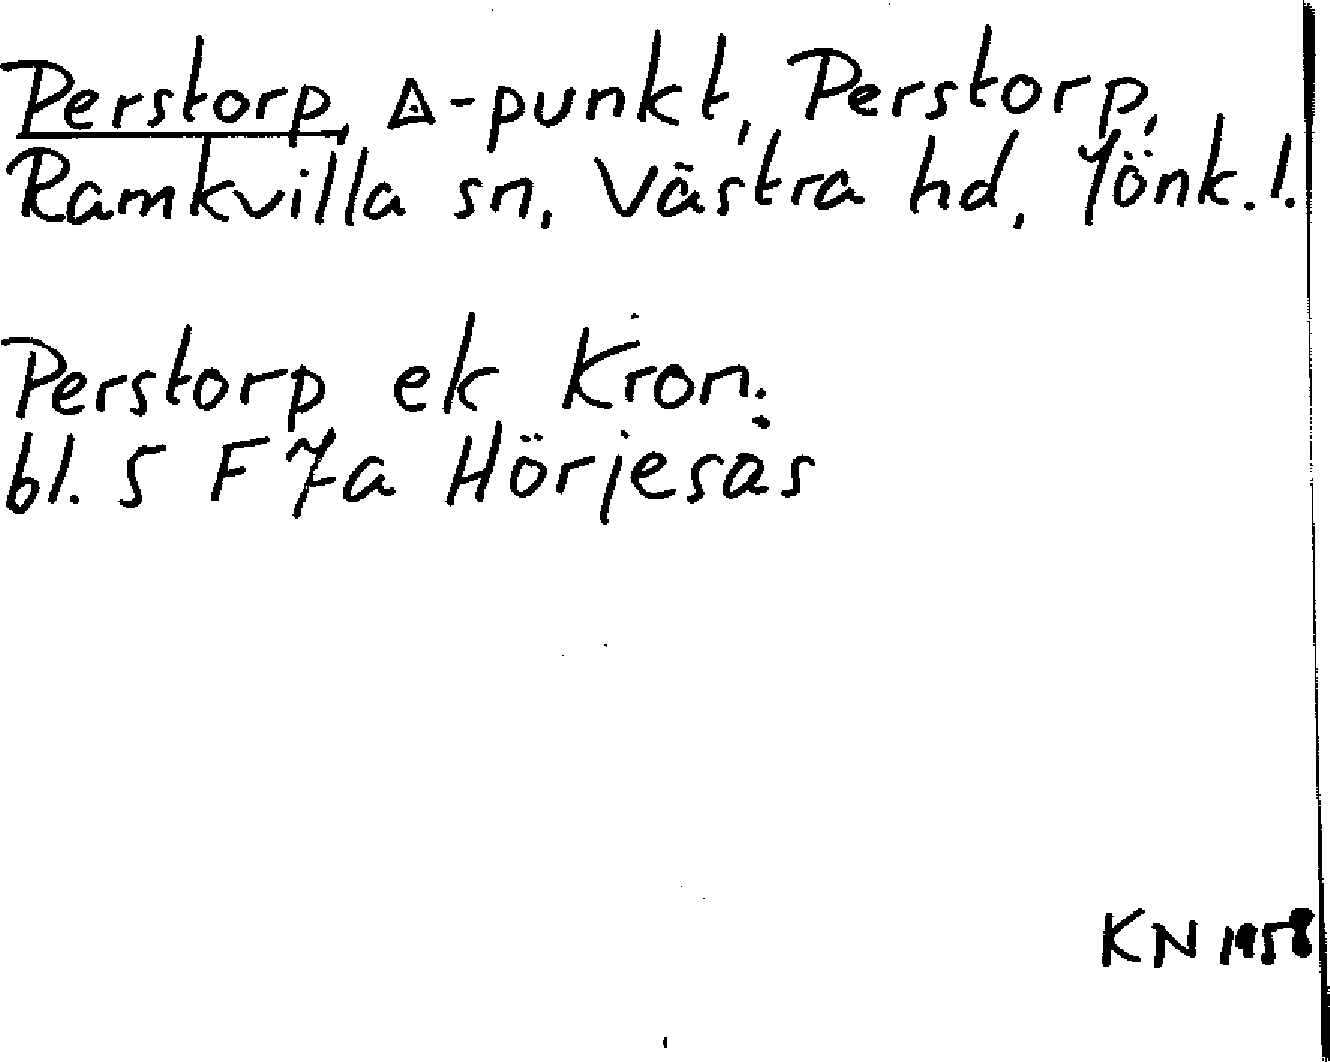 Perstorp, △-punkt, Perstorp,
Ramkvilla sn, Västra hd, Jönk.l.
Perstorp ek Kron.
bl. 5 F 7a Hörjesås
KN 1958